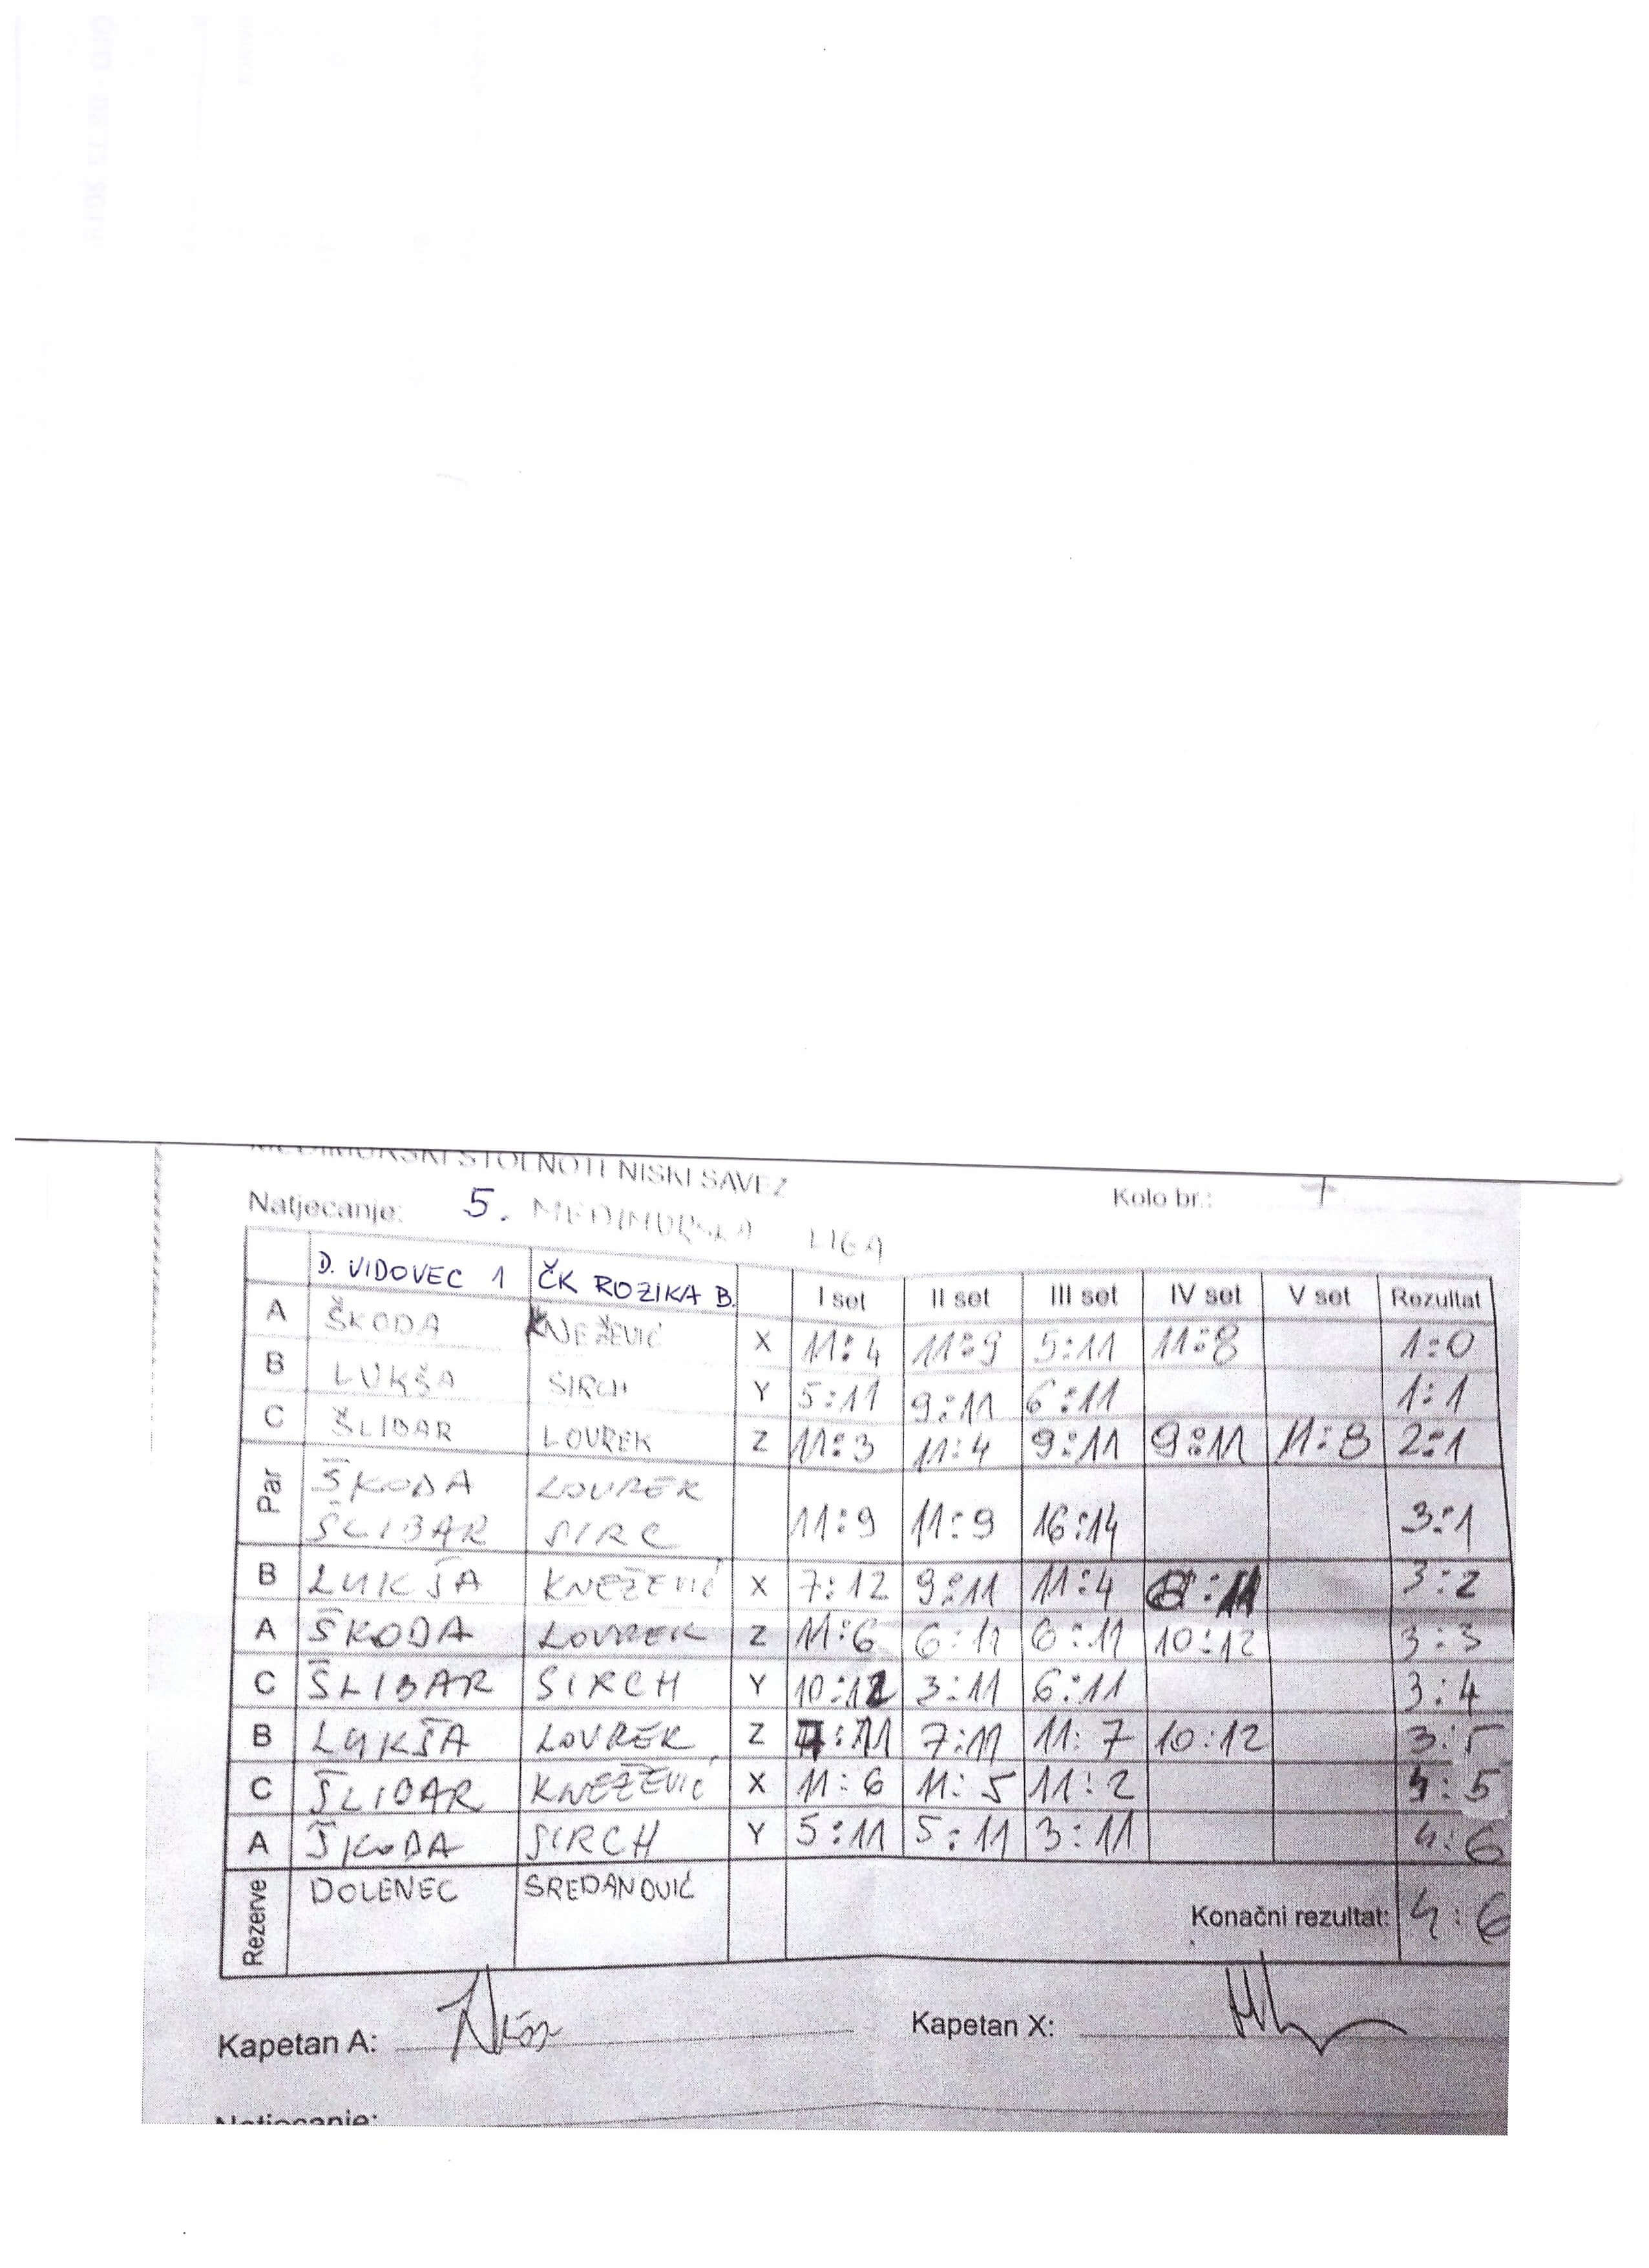 MEĐIMURSKI STOLNOTENISKI SAVEZ
Natjecanje: 5. MEĐIMURSKA LIGA Kolo br.: 7
D. VIDOVEC 1 ČK ROZIKA B. I set II set III set IV set V set Rezultat
A ŠKODA KNEŽEVIĆ X 11:4 11:9 5:11 11:8 1:0
B LUKŠA SIRCH Y 5:11 9:11 6:11 1:1
C ŠLIBAR LOVREK Z 11:3 11:4 9:11 9:11 11:8 2:1
Par ŠKODA LOVREK
ŠLIBAR SIRC 11:9 11:9 16:14 3:1
B LUKŠA KNEŽEVIĆ X 7:12 9:11 11:4 :11 3:2
A ŠKODA LOVREK Z 11:6 6:11 6:11 10:12 3:3
C ŠLIBAR SIRCH Y 10:12 3:11 6:11 3:4
B LUKŠA LOVREK Z 7:11 7:11 11:7 10:12 3:5
C ŠLIBAR KNEŽEVIĆ X 11:6 11:5 11:2 4:5
A ŠKODA SIRCH Y 5:11 5:11 3:11 4:6
Rezerve DOLENEC SREDANOVIĆ
Konačni rezultat: 4:6
Kapetan A: Kapetan X:
Natjecanje: